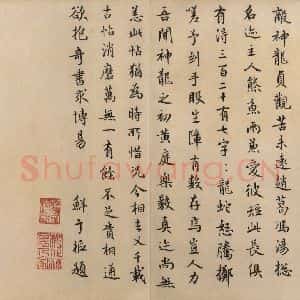 敵神龍貞觀苦未遠趙葛馮湯揔
名迹主人熊魚兩兼愛彼短此長俱
有得三百二十有七字〻〻龍蛇怒騰擲
嗟予到手眼生障有數存焉豈人力
吾聞神龍之初黃庭樂毅真迹尚無
恙此帖猶為時所惜况今相去又千載
古帖消磨萬無一有餘不足貴相通
欲抱奇書求博易 鮮于樞題
Shufawang.CN